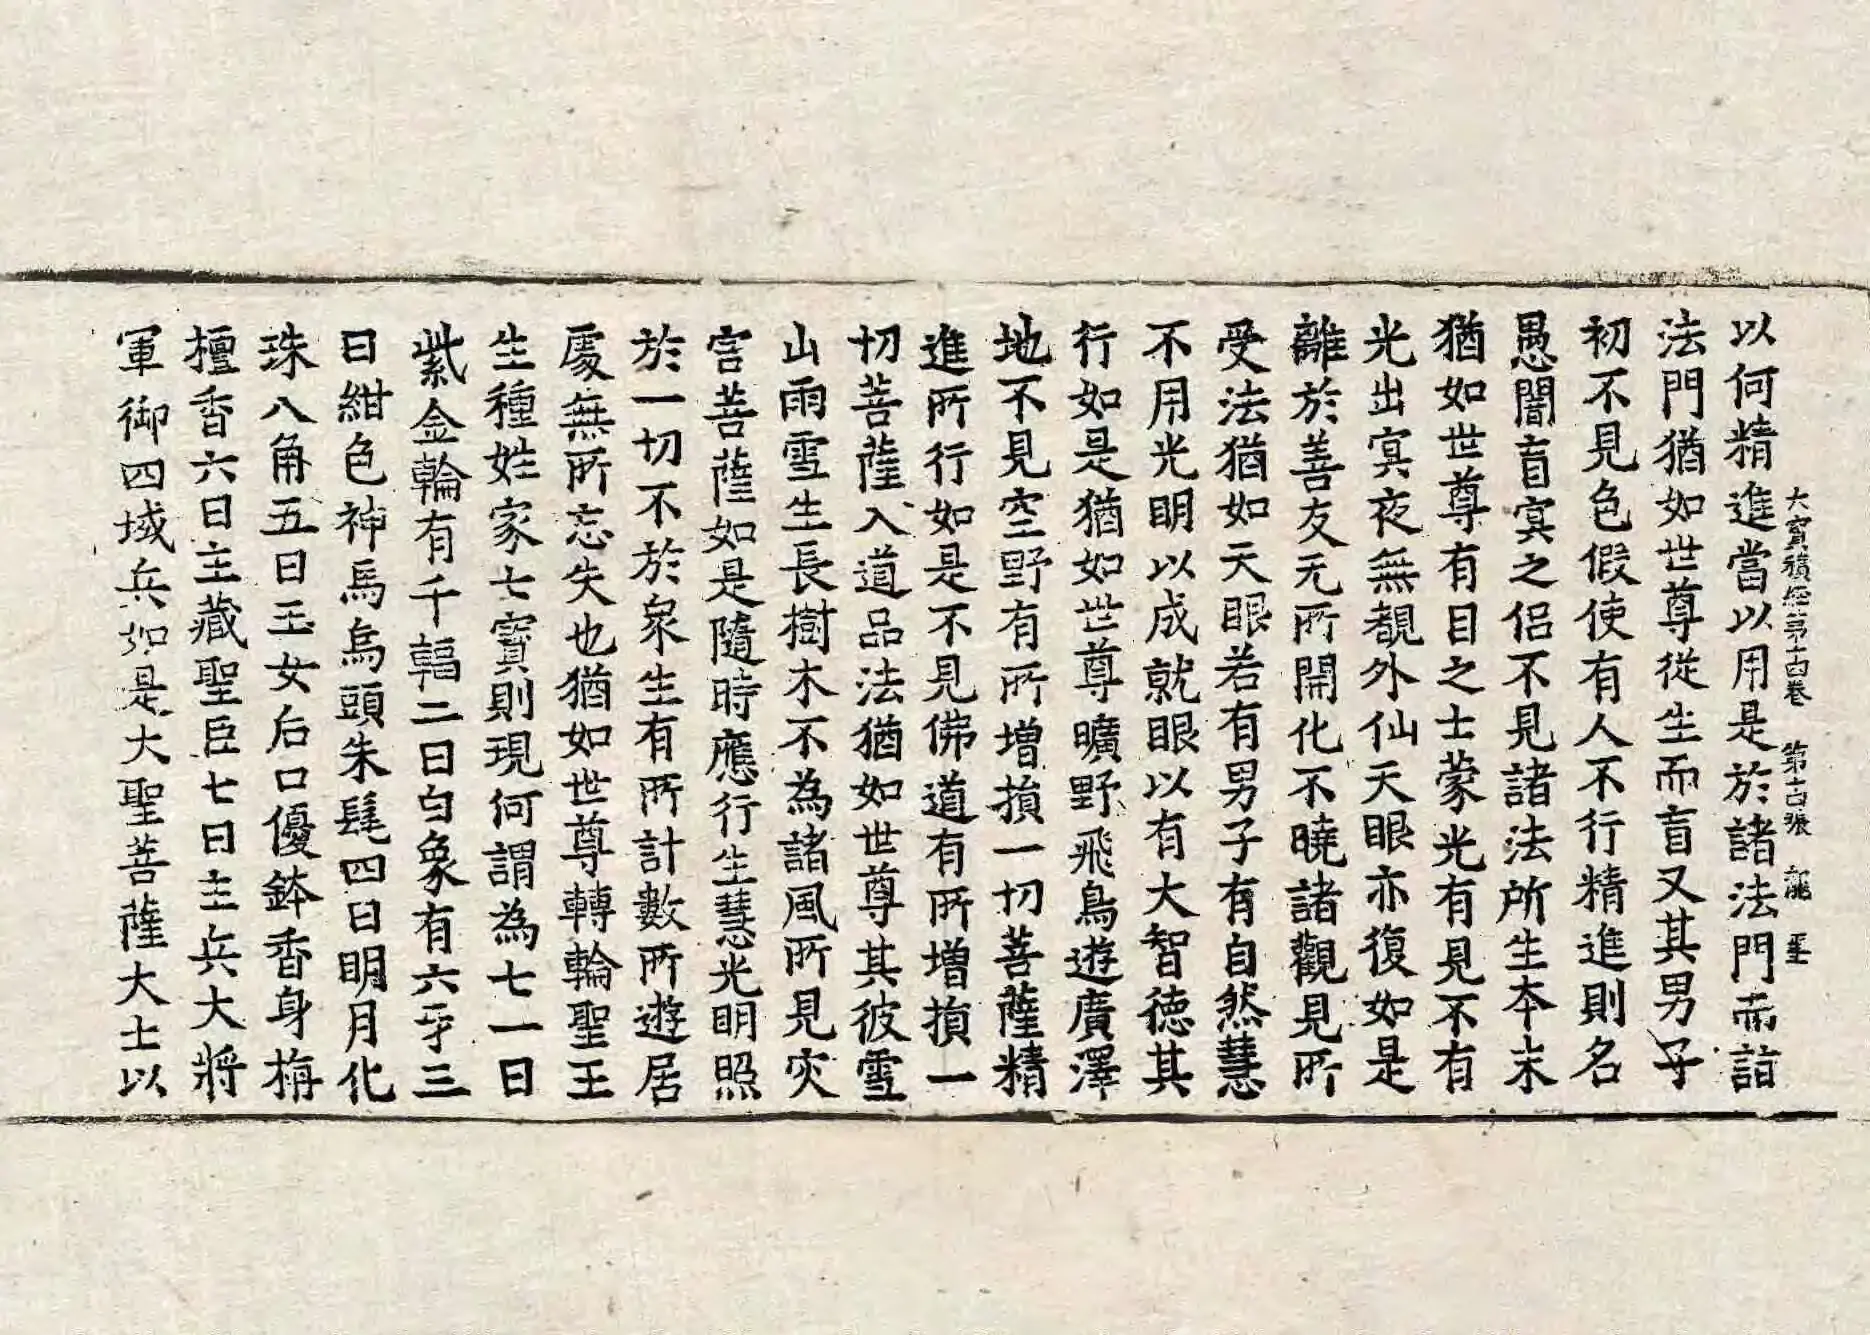 大寶積經第十四卷 第十六張 龍
以何精進當以用是於諸法門而詣
法門猶如世尊從生而盲又其男子
初不見色假使有人不行精進則名
愚闇盲冥之侶不見諸法所生本末
猶如世尊有目之士蒙光有見不有
光出冥夜無覩外仙天眼亦復如是
離於善友无所開化不曉諸觀見所
受法猶如天眼若有男子有自然慧
不用光明以成就眼以有大智德其
行如是猶如世尊曠野飛鳥遊廣澤
地不見空野有所增損一切菩薩精
進所行如是不見佛道有所增損一
切菩薩入道品法猶如世尊其彼雪
山雨雪生長樹木不為諸風所見灾
害菩薩如是隨時應行生慧光明照
於一切不於衆生有所計數所遊居
處無所忘失也猶如世尊轉輪聖王
生種姓家七寶則現何謂為七一曰
紫金輪有千輻二曰白象有六牙三
曰紺色神馬烏頭朱髦四曰明月化
珠八角五曰玉女后口優鉢香身栴
檀香六曰主藏聖臣七曰主兵大將
軍御四域兵如是大聖菩薩大士以